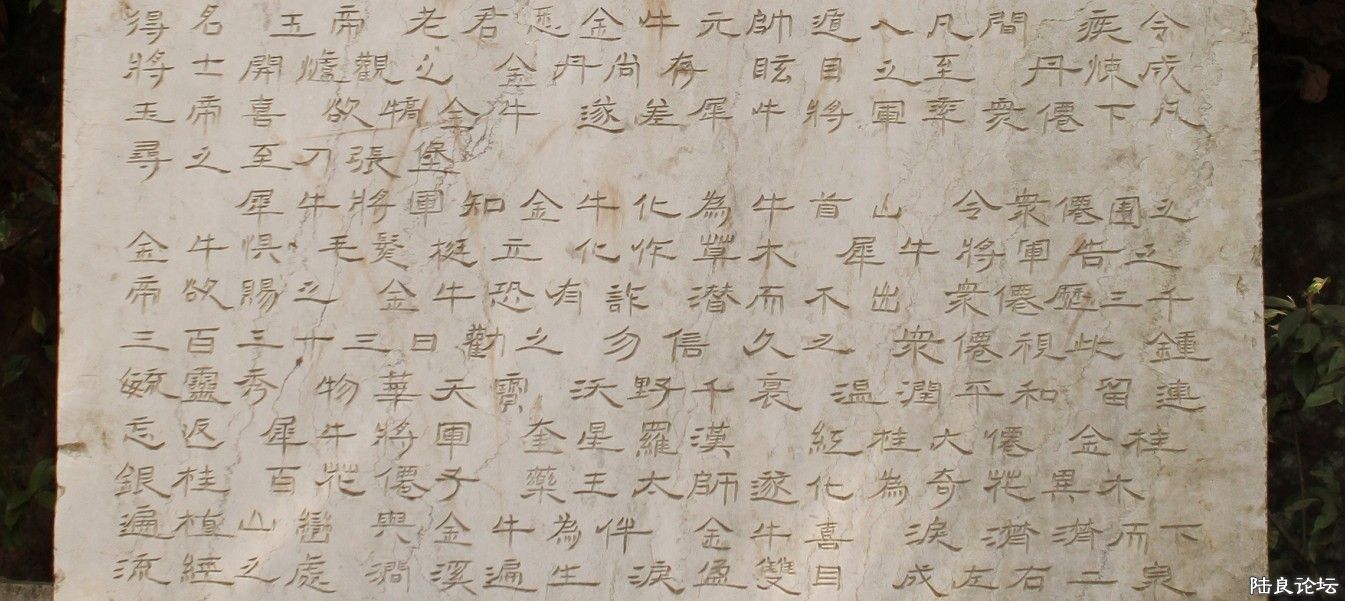 得名 玉帝老君悉金牛元帥遁入凡間 疾令
將士開爐觀之 金丹尚存 眩目之至 丹煉成
玉帝喜 欲犒金牛 遂差犀牛將軍率衆僊下凡
尋之至刀張堡
犀牛將軍知金牛化為牛首山 令衆僊圍之
金牛惧 毛髮挺立化作草木 犀牛將軍告之
帝欲賜之 金牛恐有詐 潛而不出 衆僊歷三千
三百三十三日勸之 勿信 久之 衆僊視此鍾
毓靈秀 物華天寶 沃野千裏 温潤平和 留連
忘返 犀牛將軍 奎星羅漢 紅桂大僊 金桂
銀桂 百花僊子 藥王太師 遂化為奇花異木
遍植山巒 與金牛為伴 金牛喜 淚濟濟而下
流經之處 澗溪遍生 淚盈雙目 成左右二泉
陆良论坛